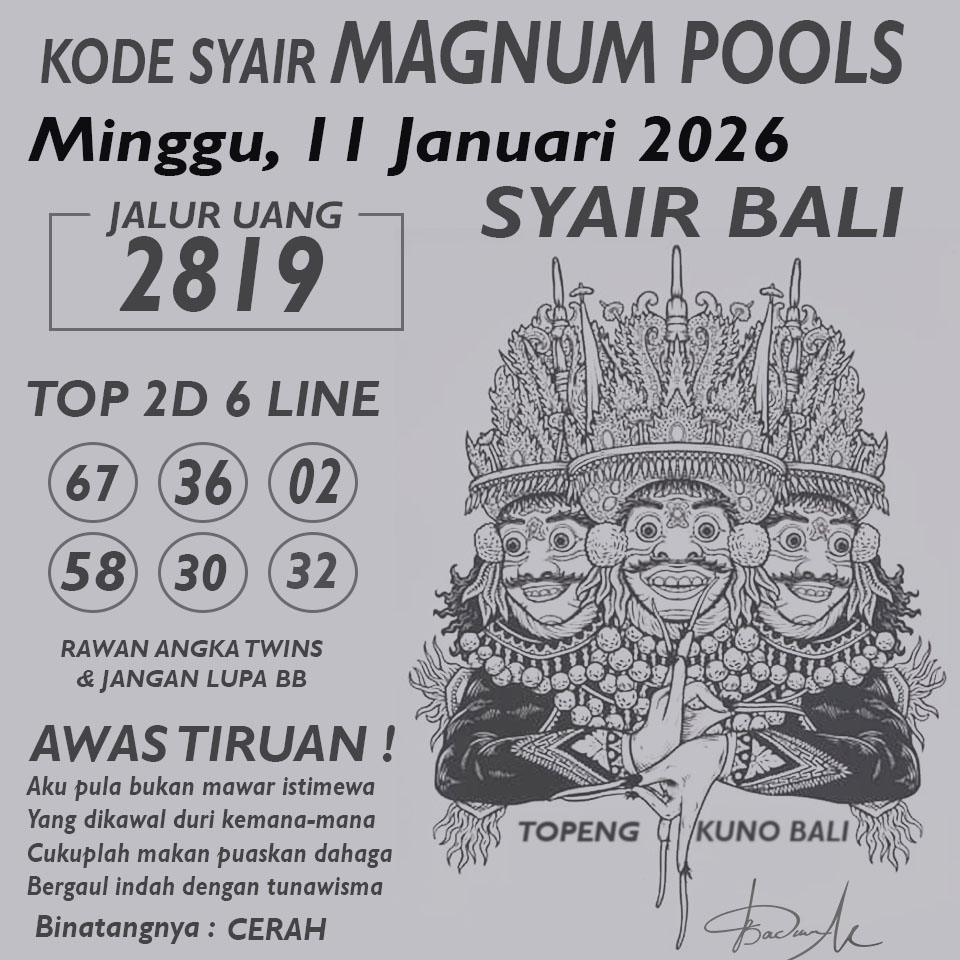 KODE SYAIR MAGNUM POOLS
Minggu, 11 Januari 2026
SYAIR BALI
JALUR UANG
2819
TOP 2D 6 LINE
67 36 02
58 30 32
RAWAN ANGKA TWINS
& JANGAN LUPA BB
AWAS TIRUAN !
Aku pula bukan mawar istimewa
Yang dikawal duri kemana-mana
Cukuplah makan puaskan dahaga
Bergaul indah dengan tunawisma
Binatangnya : CERAH
TOPENG KUNO BALI